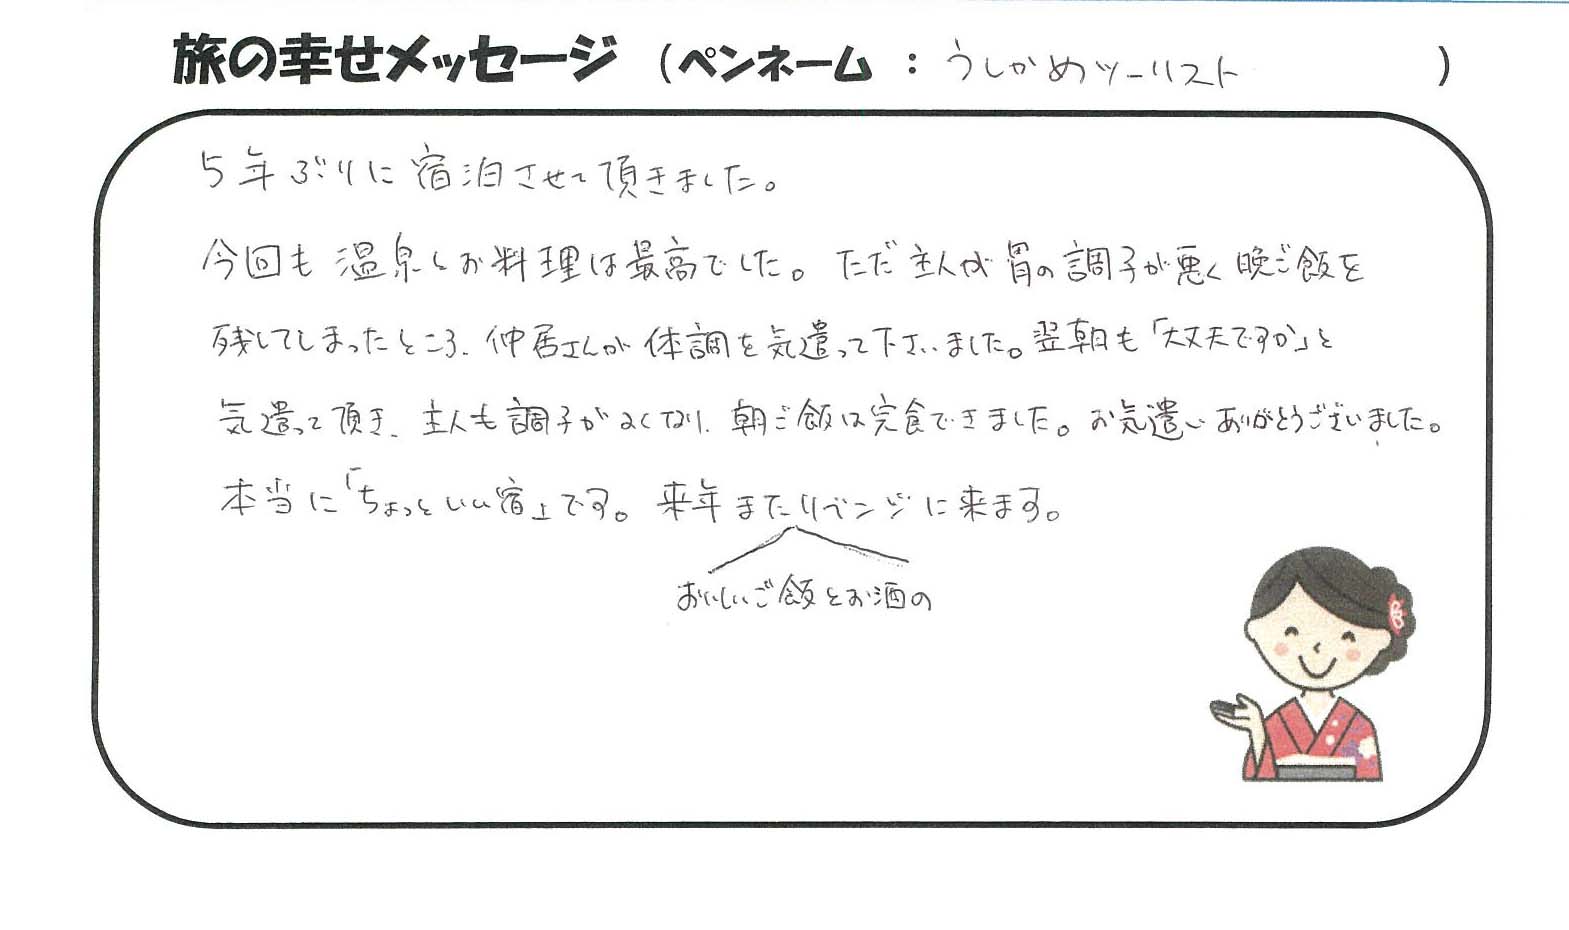 旅の幸せメッセージ （ペンネーム ： うしかめツーリスト ）
5年ぶりに宿泊させて頂きました。
今回も温泉とお料理は最高でした。ただ主人が胃の調子が悪く晩ご飯を
残してしまったところ、仲居さんが体調を気遣って下さいました。翌朝も「大丈夫ですか」と
気遣って頂き、主人も調子がよくなり、朝ご飯は完食できました。お気遣いありがとうございました。
本当に「ちょっといい宿」です。来年またリベンジに来ます。
おいしいご飯とお酒の